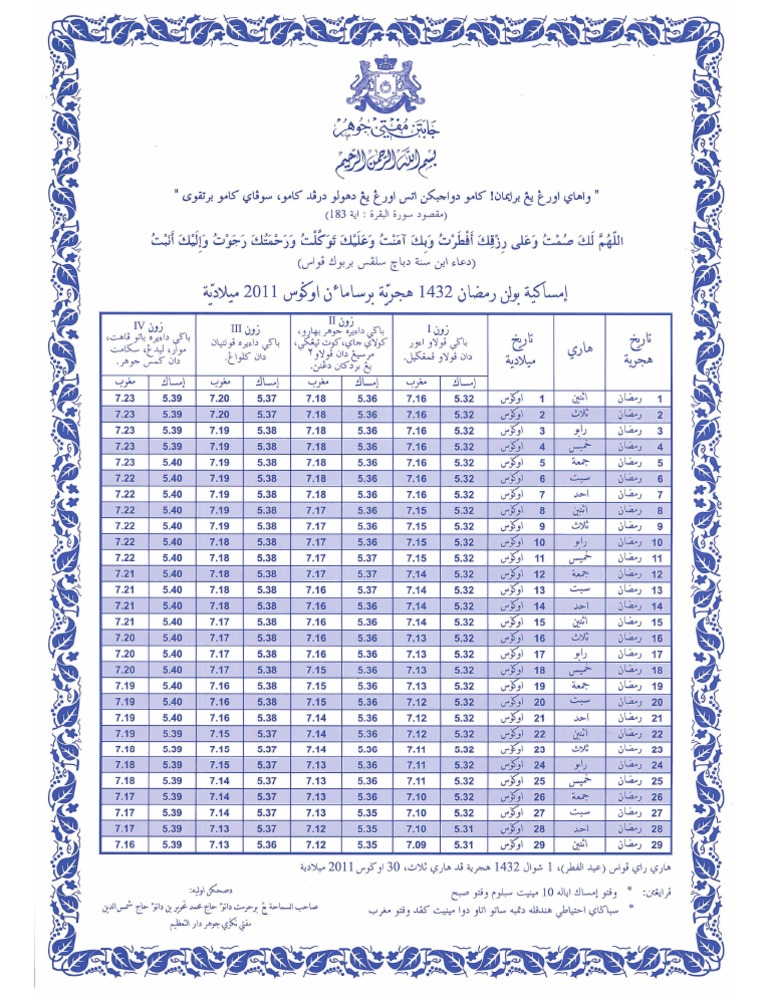 جابتن مفتي جوهر
بسم الله الرحمن الرحيم
" واهاي اورڠ يڠ براِيمان! كامو دواجبكن اتس اورڠ يڠ دهولو درڤد كامو، سوڤاي كامو برتقوى "
(مقصود سورة البقرة : اية 183)
اللّهُمَّ لَكَ صُمْتُ وَعَلى رِزْقِكَ أَفْطَرْتُ وَبِكَ آمَنْتُ وَعَلَيْكَ تَوَكَّلْتُ وَرَحْمَتَكَ رَجَوْتُ وَإِلَيْكَ أَنَبْتُ
(دعاء اين سنة دباچ سلڤس بربوك ڤواس)
إمساكية بولن رمضان 1432 هجريّة برسامأن اوݢوس 2011 ميلاديّة
تاريخ هجرية | هاري | تاريخ ميلادية | زون I باݢي ڤولاو اءور دان ڤولاو ڤمڠݢيل. | زون II باݢي داءيره جوهر بهارو، كولاي جاي، كوت تيڠݢي، مرسيڠ دان ڤولاو٢ يڠ بردكتن دڠن. | زون III باݢي داءيره ڤونتيان دان كلواڠ. | زون IV باݢي داءيره باتو ڤاهت، موار، ليدڠ، سݢامت دان كمس جوهر.
إمساك | مغرب | إمساك | مغرب | إمساك | مغرب | إمساك | مغرب
1 رمضان | اثنين | 1 اوݢوس | 5.32 | 7.16 | 5.36 | 7.18 | 5.37 | 7.20 | 5.39 | 7.23
2 رمضان | ثلاث | 2 اوݢوس | 5.32 | 7.16 | 5.36 | 7.18 | 5.37 | 7.20 | 5.39 | 7.23
3 رمضان | رابو | 3 اوݢوس | 5.32 | 7.16 | 5.36 | 7.18 | 5.38 | 7.19 | 5.39 | 7.23
4 رمضان | خميس | 4 اوݢوس | 5.32 | 7.16 | 5.36 | 7.18 | 5.38 | 7.19 | 5.39 | 7.23
5 رمضان | جمعة | 5 اوݢوس | 5.32 | 7.16 | 5.36 | 7.18 | 5.38 | 7.19 | 5.40 | 7.23
6 رمضان | سبت | 6 اوݢوس | 5.32 | 7.16 | 5.36 | 7.18 | 5.38 | 7.19 | 5.40 | 7.22
7 رمضان | احد | 7 اوݢوس | 5.32 | 7.16 | 5.36 | 7.18 | 5.38 | 7.19 | 5.40 | 7.22
8 رمضان | اثنين | 8 اوݢوس | 5.32 | 7.15 | 5.36 | 7.17 | 5.38 | 7.19 | 5.40 | 7.22
9 رمضان | ثلاث | 9 اوݢوس | 5.32 | 7.15 | 5.36 | 7.17 | 5.38 | 7.19 | 5.40 | 7.22
10 رمضان | رابو | 10 اوݢوس | 5.32 | 7.15 | 5.36 | 7.17 | 5.38 | 7.18 | 5.40 | 7.22
11 رمضان | خميس | 11 اوݢوس | 5.32 | 7.15 | 5.37 | 7.17 | 5.38 | 7.18 | 5.40 | 7.22
12 رمضان | جمعة | 12 اوݢوس | 5.32 | 7.14 | 5.37 | 7.17 | 5.38 | 7.18 | 5.40 | 7.21
13 رمضان | سبت | 13 اوݢوس | 5.32 | 7.14 | 5.37 | 7.16 | 5.38 | 7.18 | 5.40 | 7.21
14 رمضان | احد | 14 اوݢوس | 5.32 | 7.14 | 5.36 | 7.16 | 5.38 | 7.18 | 5.40 | 7.21
15 رمضان | اثنين | 15 اوݢوس | 5.32 | 7.14 | 5.36 | 7.16 | 5.38 | 7.17 | 5.40 | 7.21
16 رمضان | ثلاث | 16 اوݢوس | 5.32 | 7.13 | 5.36 | 7.16 | 5.38 | 7.17 | 5.40 | 7.20
17 رمضان | رابو | 17 اوݢوس | 5.32 | 7.13 | 5.36 | 7.16 | 5.38 | 7.17 | 5.40 | 7.20
18 رمضان | خميس | 18 اوݢوس | 5.32 | 7.13 | 5.36 | 7.15 | 5.38 | 7.17 | 5.40 | 7.20
19 رمضان | جمعة | 19 اوݢوس | 5.32 | 7.13 | 5.36 | 7.15 | 5.38 | 7.16 | 5.40 | 7.19
20 رمضان | سبت | 20 اوݢوس | 5.32 | 7.12 | 5.36 | 7.15 | 5.38 | 7.16 | 5.40 | 7.19
21 رمضان | احد | 21 اوݢوس | 5.32 | 7.12 | 5.36 | 7.14 | 5.38 | 7.16 | 5.40 | 7.19
22 رمضان | اثنين | 22 اوݢوس | 5.32 | 7.12 | 5.36 | 7.14 | 5.37 | 7.15 | 5.39 | 7.19
23 رمضان | ثلاث | 23 اوݢوس | 5.32 | 7.11 | 5.36 | 7.14 | 5.37 | 7.15 | 5.39 | 7.18
24 رمضان | رابو | 24 اوݢوس | 5.32 | 7.11 | 5.36 | 7.13 | 5.37 | 7.15 | 5.39 | 7.18
25 رمضان | خميس | 25 اوݢوس | 5.32 | 7.11 | 5.36 | 7.13 | 5.37 | 7.14 | 5.39 | 7.18
26 رمضان | جمعة | 26 اوݢوس | 5.32 | 7.10 | 5.36 | 7.13 | 5.37 | 7.14 | 5.39 | 7.17
27 رمضان | سبت | 27 اوݢوس | 5.32 | 7.10 | 5.35 | 7.13 | 5.37 | 7.14 | 5.39 | 7.17
28 رمضان | احد | 28 اوݢوس | 5.31 | 7.10 | 5.35 | 7.12 | 5.37 | 7.13 | 5.39 | 7.17
29 رمضان | اثنين | 29 اوݢوس | 5.31 | 7.09 | 5.35 | 7.12 | 5.36 | 7.13 | 5.39 | 7.16
هاري راي ڤواس (عيد الفطر)، 1 شوال 1432 هجرية ڤد هاري ثلاث، 30 اوݢوس 2011 ميلادية
ڤرايڠتن: * وقتو إمساك اياله 10 مينيت سبلوم وقتو صبح
* سباݢاي احتياطي هندقله دتمبه ساتو اتاو دوا مينيت كڤد وقتو مغرب
دصحكن اوليه:
صاحب السماحة يڠ برحرمت داتوء حاج محمد تحرير بن داتوء حاج شمس الدين
مفتي نݢري جوهر دار التعظيم